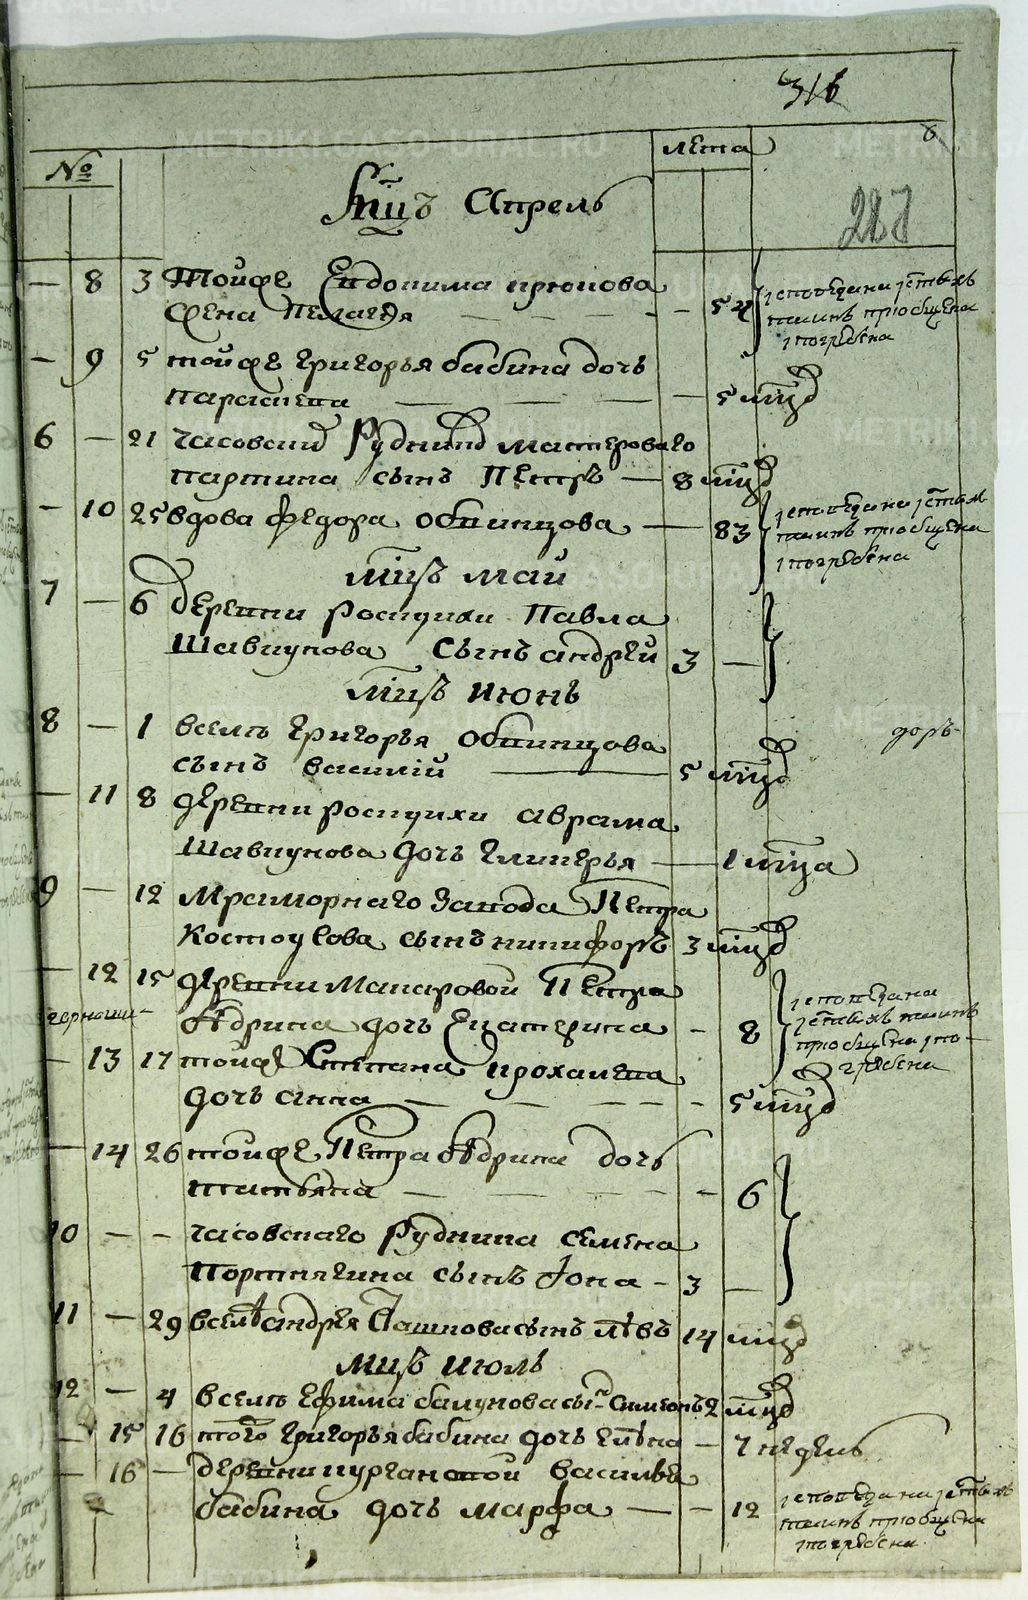 METRIKI.GASO-URAL.RU
316
№ лета
8
Мцъ Апрель
227
— 8 3 Тойже Евдокима Крюкова
жена Пелагея — 54 исповедана и стыхъ
таинъ приобщена
и погребена
— 9 5 тойже Григорья бабина дочь
параскева — — 5 мцод
6 — 21 часовский Рудникъ мастероваго
мартина сынъ Петръ — 8 мцод
— 10 25 вдова федора Обвинцова — 83 исповедана и стыхъ
таинъ приобщена
и погребена
мцъ май
7 — 6 деревни роскухи Павла
Шавкунова Сынъ андрей 3 —
мцъ июнь
8 — 1 вселѣ Григорья Обвинцова
дорѣ
сынъ василий — 5 мцод
— 11 8 деревни роскухи аврама
Шавкунова дочь гликерья — 1 мца
9 — 12 Мраморнаго Завода Петра
Костоусова сынъ никифоръ 3 мцод
— 12 15 деревни Макаровой Петра
Ѣдрина дочь Екатерина — 8 исповедана
и стыхъ таинъ
приобщена и по-
гребена
— 13 17 тойже Степана прохалева
дочь анна — — 5 мцод
— 14 26 тойже Петра Ѣдрина дочь
татьяна — — 6
10 — — часовскаго Рудника семена
Портнягина сынъ Iона — 3 —
11 — 29 вселѣ андрея Пашкова сынъ лѣвъ 14 мцод
мцъ июль
12 — 4 вселѣ Ефима балукова сынъ Симеонъ 2 мцод
— 15 16 тогоже Григорья бабина дочь елена — 7 недель
— 16 — деревни кургановой василья
бабина дочь марфа — — 12 исповедана и стыхъ
таинъ приобщена
и погребена